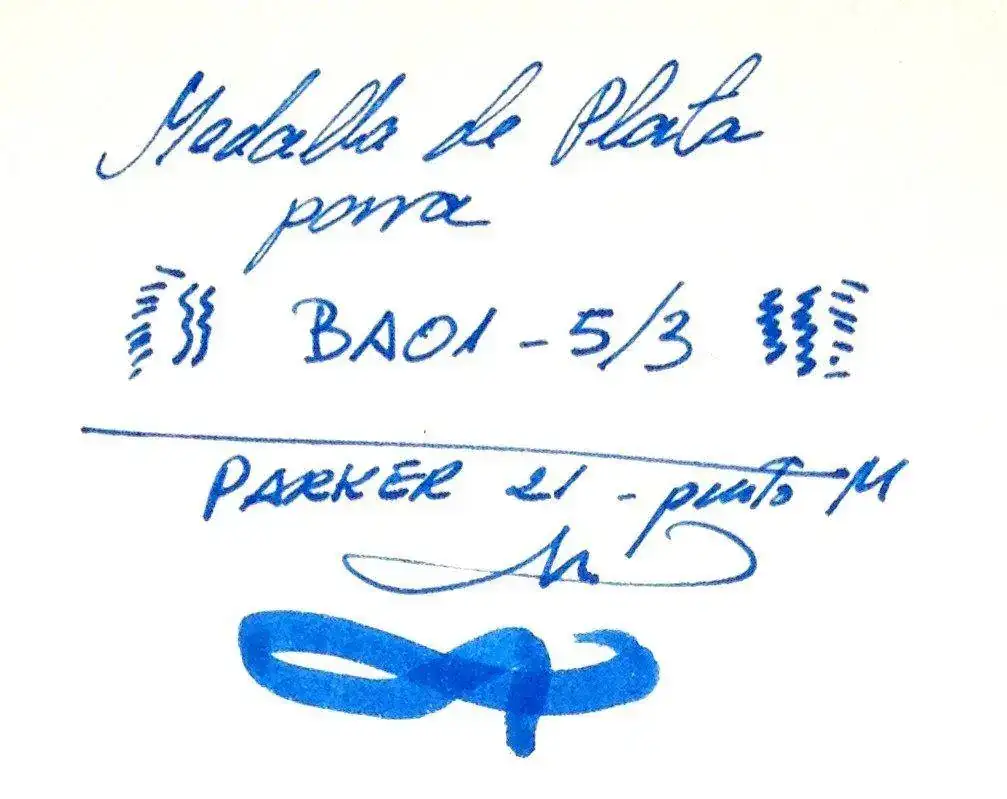 Medalla de Plata
para
BA01 - 5/3
PARKER 21 - punto M